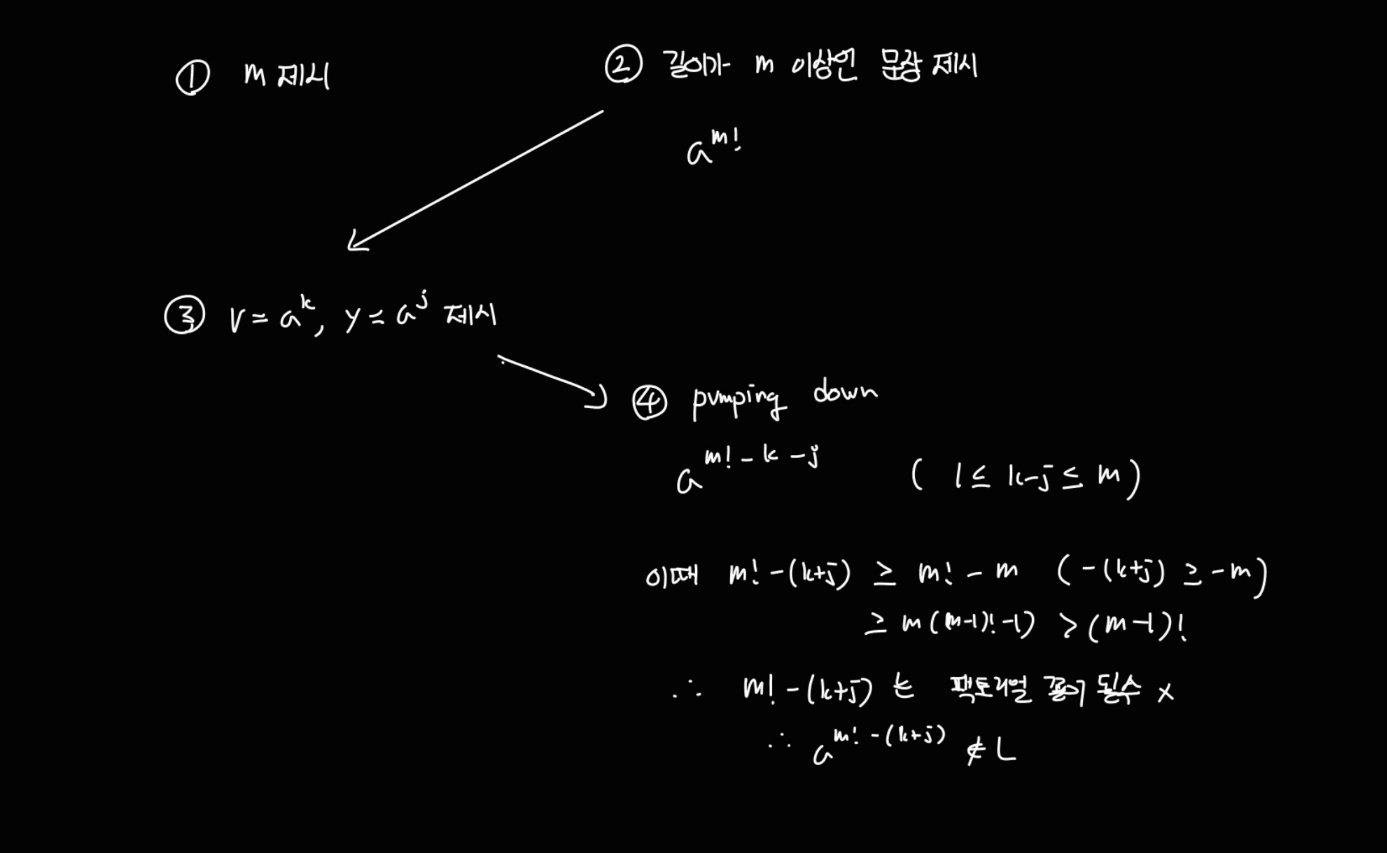 ① m 제시
② 길이가 m 이상인 문장 제시
a^{m!}
③ v = a^k, y = a^j 제시
④ pumping down
a^{m!-k-j} ( 1 ≤ k-j ≤ m )
이때 m! -(k+j) ≥ m! - m (-(k+j) ≥ -m)
≥ m((m-1)!-1) > (m-1)!
∴ m! - (k+j) 는 팩토리얼 꼴이 될수 x
∴ a^{m!-(k+j)} ∉ L